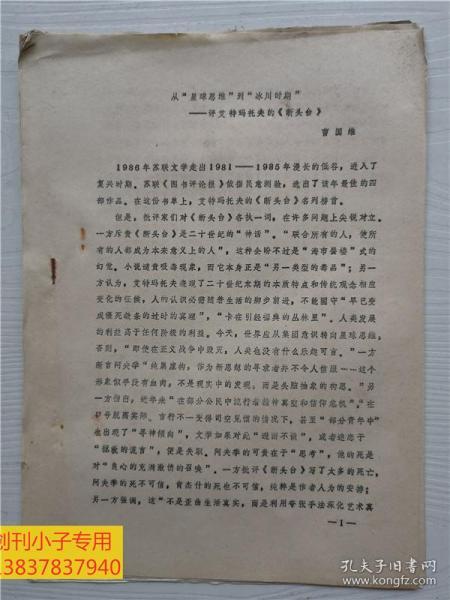 从“星球思维”到“冰川时期”
——评艾特玛托夫的《断头台》
曹国维
1986年苏联文学走出1981——1985年漫长的低谷，进入了
复兴时期。苏联《图书评论报》依循民意测验，选出了该年最佳的四
部作品。在这份书单上，艾特玛托夫的《断头台》名列榜首。
但是，批评家们对《断头台》各执一词，在许多问题上尖锐对立。
一方斥责《断头台》是二十世纪的“神话”。“联合所有的人，使所
有的人都成为本来意义上的人”，这种企盼不过是“海市蜃楼”式的
幻觉。小说谴责吸毒现象，而它本身正是“另一类型的毒品”；另一
方认为，艾特玛托夫表现了二十世纪末期的本质特点和传统观念相应
变化的征候，人的认识必需随着生活的脚步前进，不能固守“早已变
成僵死教条的过时的真理”，“卡在引经据典的丛林里”。人类发展
的利益高于任何阶级的利益。今天，世界应从集团意识转向星球思维，
否则，“即使在正义战争中毁灭，人类也没有什么乐趣可言。”一方
断言阿夫季“纯属虚构，作为新思想的寻求者并不令人信服……这个
形象似乎没有血肉，不是现实中的发现，而是头脑抽象的构思。”另
一方指出，近年来“在部分公民中流行着精神真空和信仰危机”，在
口号脱离实际、言行不一受得司空见惯的情况下，甚至“部分青年中”
也出现了“寻神倾向”，文学如果对此“避而不谈”，或者迷恋于
“拯救的谎言”，便是失职。阿夫季的可贵在于“思考”，他的死是
对“良心的充满激情的召唤”。一方批评《断头台》写了太多的死亡，
阿夫季的死不可信，肯杰什的死也不可信，纯粹是作者人为的安排；
另一方强调，这“不是歪曲生活真实，而是利用夸张手法深化艺术真
—1—
创刊小子专用
13837837940
孔夫子旧书网
www.kongfz.com